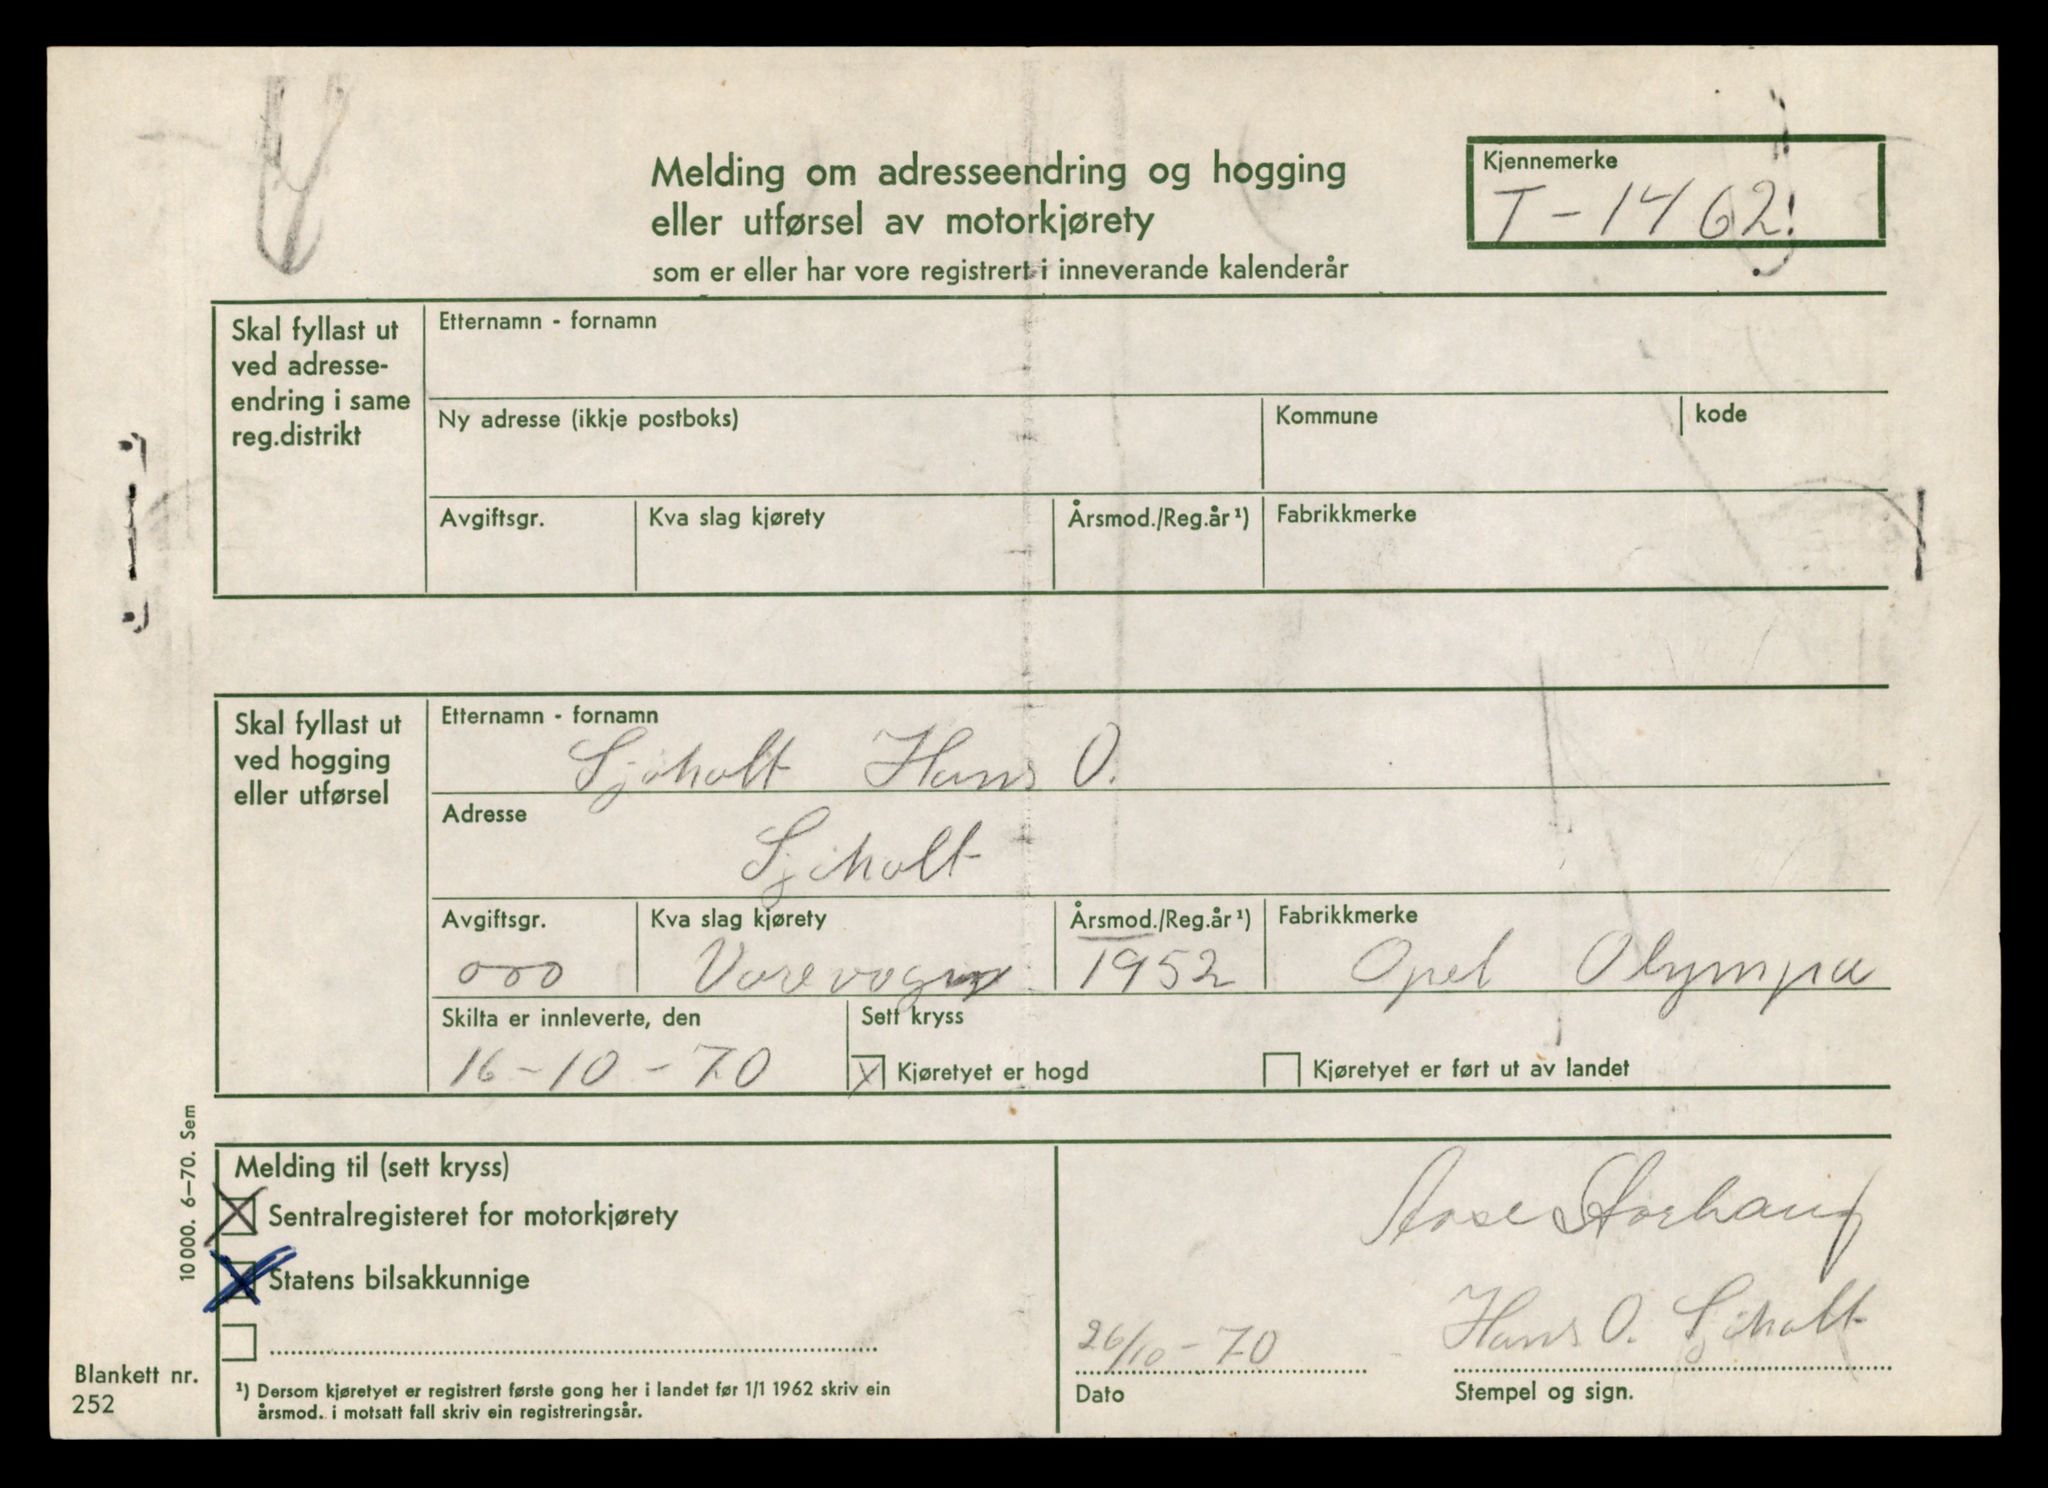 Melding om adresseendring og hogging
eller utførsel av motorkjørety
som er eller har vore registrert i inneverande kalenderår
Kjennemerke
T - 1462!
Skal fyllast ut
ved adresse-
endring i same
reg.distrikt
Etternamn - fornamn
Ny adresse (ikkje postboks)
Kommune
kode
Avgiftsgr.
Kva slag kjørety
Årsmod./Reg.år ¹)
Fabrikkmerke
Skal fyllast ut
ved hogging
eller utførsel
Etternamn - fornamn
Sjøholt Hans O.
Adresse
Sjøholt
Avgiftsgr.
000
Kva slag kjørety
Varevogn
Årsmod./Reg.år ¹)
1952
Fabrikkmerke
Opel Olympia
Skilta er innleverte, den
16-10-70
Sett kryss
x Kjøretyet er hogd
Kjøretyet er ført ut av landet
Melding til (sett kryss)
x Sentralregisteret for motorkjørety
x Statens bilsakkunnige
10 000. 6-70. Sem
Blankett nr.
252
¹) Dersom kjøretyet er registrert første gong her i landet før 1/1 1962 skriv ein
årsmod. i motsatt fall skriv ein registreringsår.
26/10-70
Dato
Hans O. Sjøholt
Stempel og sign.